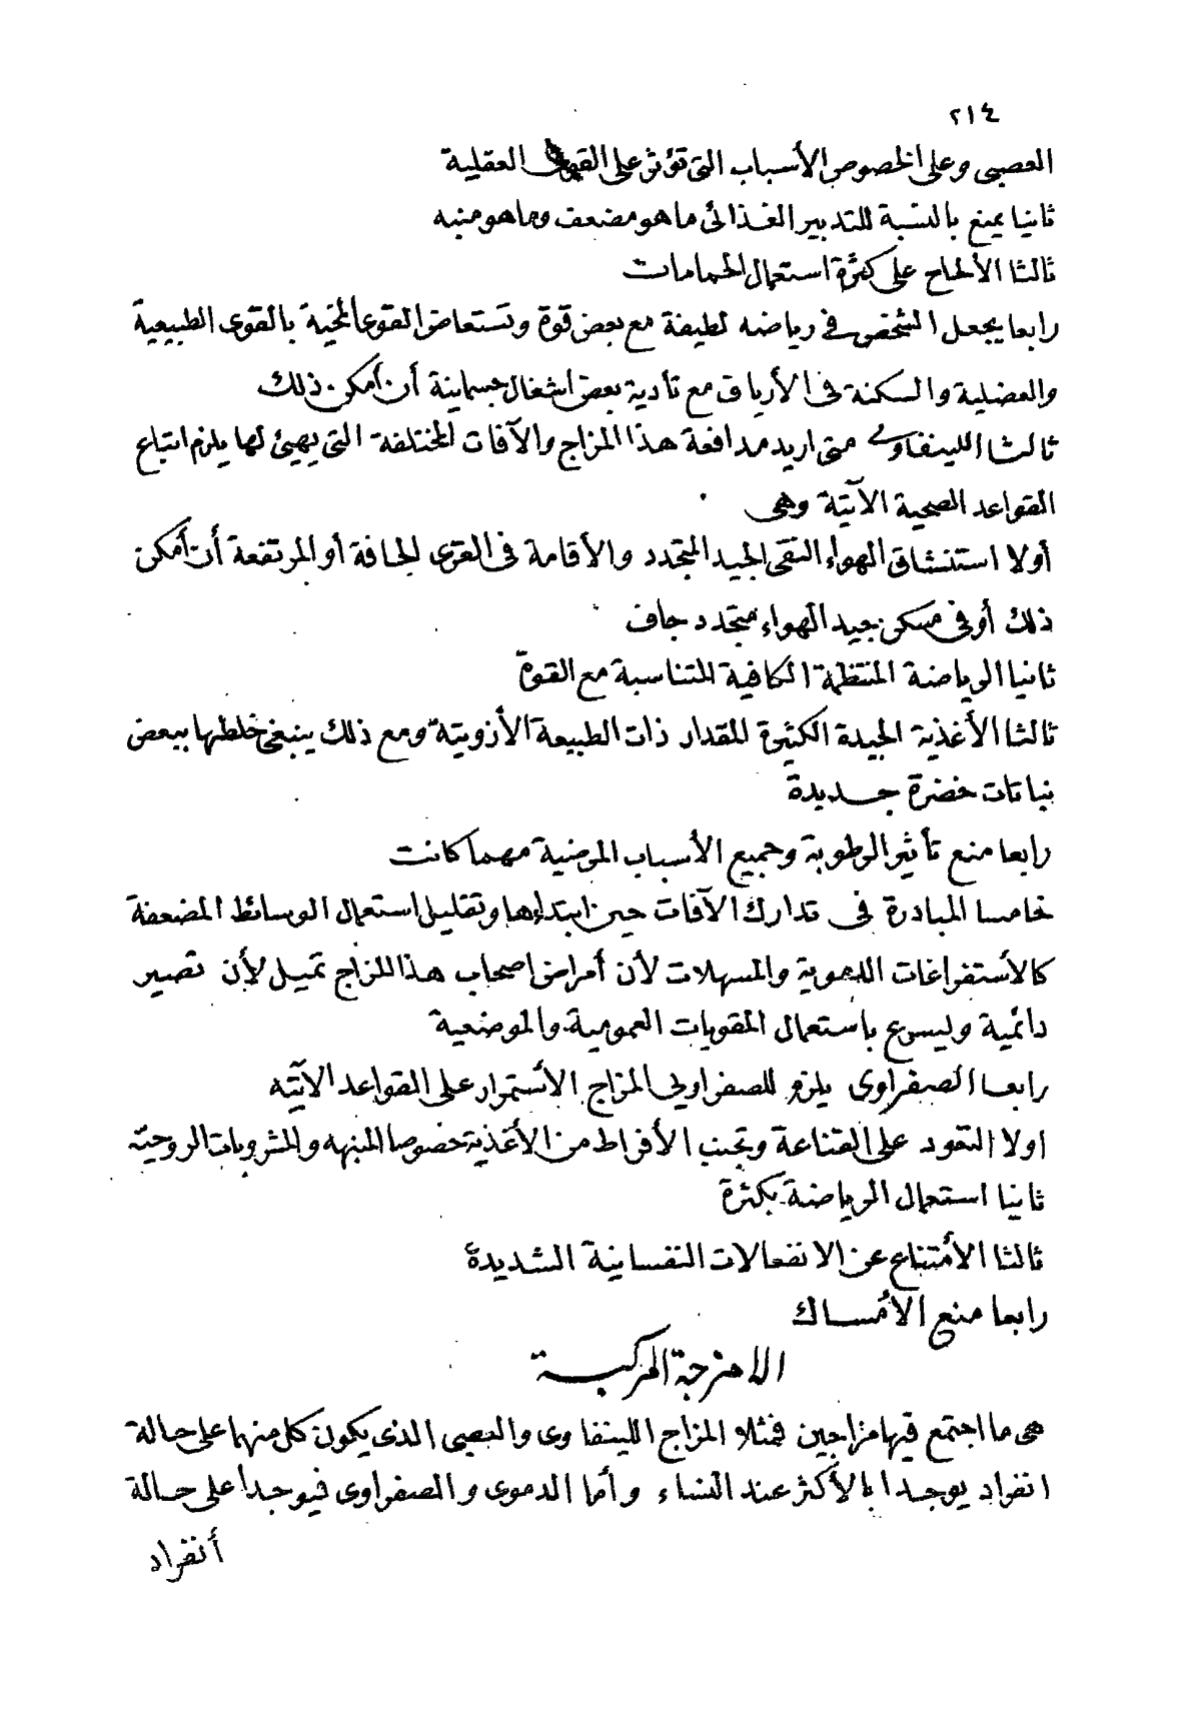 ٢١٤
العصبى وعلى الخصوص الأسباب التى تؤثر على القوى العقلية
ثانيا يمنع بالنسبة للتدبير الغذائى ما هو مضعف وما هو منبه
ثالثا الألحاح على كثرة استعمال الحمامات
رابعا يجعل الشخص فى رياضه لطيفة مع بعض قوة وتستعاض القوى المخية بالقوى الطبيعية
والعضلية والسكنة فى الأرياف مع تأدية بعض أشغال جسمانية أن أمكن ذلك
ثالثا اللينفاوى متى اريد مدافعة هذا المزاج والآفات المختلفة التى يهيئ لها يلزم اتباع
القواعد الصحية الآتية وهى
أولا استنشاق الهواء النقى الجيد المتجدد والأقامة فى القرى الجافة أو المرتفعة أن أمكن
ذلك أو فى مسكن جيد الهواء متجدد جاف
ثانيا الرياضة المنتظمة الكافية المتناسبة مع القوة
ثالثا الأغذية الجيدة الكثيرة المقدار ذات الطبيعة الأزوتية ومع ذلك ينبغى خلطها ببعض
نباتات خضرة جديدة
رابعا منع تأثير الرطوبة وجميع الأسباب المرضية مهما كانت
خامسا المبادرة فى تدارك الآفات حين ابتداءها وتقليل استعمال الوسائط المضعفة
كالأستفراغات الدموية والمسهلات لأن أمراض اصحاب هذا المزاج تميل لأن تصير
دائمية وليسرع باستعمال المقويات العمومية والموضعية
رابعا الصفراوى يلزم للصفراوى المزاج الأستمرار على القواعد الآتيه
اولا التعود على القناعة وتجنب الأفراط من الأغذية خصوصا المنبهه والمشروبات الروحية
ثانيا استعمال الرياضة بكثرة
ثالثا الأمتناع عن الانفعالات النفسانية الشديدة
رابعا منع الأمساك
الامزجة المركبة
هى ما اجتمع فيها مزاجين فمثلا المزاج اللينفاوى والعصبى الذى يكون كل منهما على حالة
انفراد يوجدا بالأكثر عند النساء وأما الدموى والصفراوى فيوجدا على حالة
أنفراد